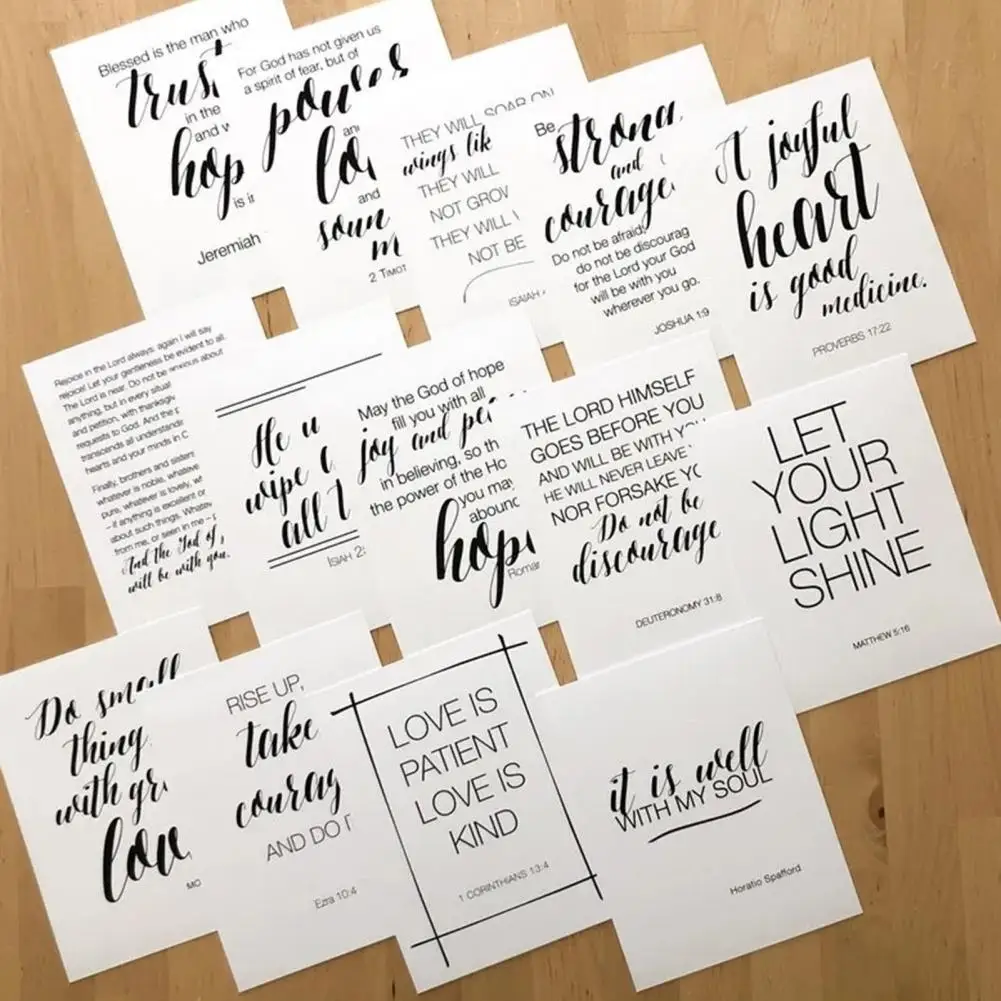 Blessed is the man who
trust
in the
and
hop
is i
Jeremiah
For God has not given us
a spirit of fear, but of
power
an
lo
and
soun
m
2 TIMOT
THEY WILL SOAR ON
wings lik
THEY WILL
NOT GROW
THEY WILL
NOT BE
ISAIAH
Be
strong
and
courage
Do not be afraid;
do not be discourag
for the Lord your God
will be with you
wherever you go.
JOSHUA 1:9
A joyful
heart
is good
medicine.
PROVERBS 17:22
Rejoice in the Lord always: again I will say
rejoice! Let your gentleness be evident to all.
The Lord is near. Do not be anxious about
anything, but in every situat
and petition, with thanksgiv
requests to God. And the p
transcends all understandin
hearts and your minds in C
Finally, brothers and sisters
whatever is noble, whateve
pure, whatever is lovely, wh
– if anything is excellent or
about such things. Whatev
from me, or seen in me –
And the God of
will be with you.
He w
wipe
all t
ISIAH 2
May the God of hope
fill you with all
joy and pea
in believing, so th
the power of the Ho
you may
abound
hope
Roman
THE LORD HIMSELF
GOES BEFORE YOU
AND WILL BE WITH YOU
HE WILL NEVER LEAVE
NOR FORSAKE YO
Do not be
discourage
DEUTERONOMY 31:8
LET
YOUR
LIGHT
SHINE
MATTHEW 5:16
Do small
thing
with gr
love
MO
RISE UP,
take
courag
AND DO I
Ezra 10:4
LOVE IS
PATIENT
LOVE IS
KIND
1 CORINTHIANS 13:4
it is well
WITH MY SOUL
Horatio Spafford